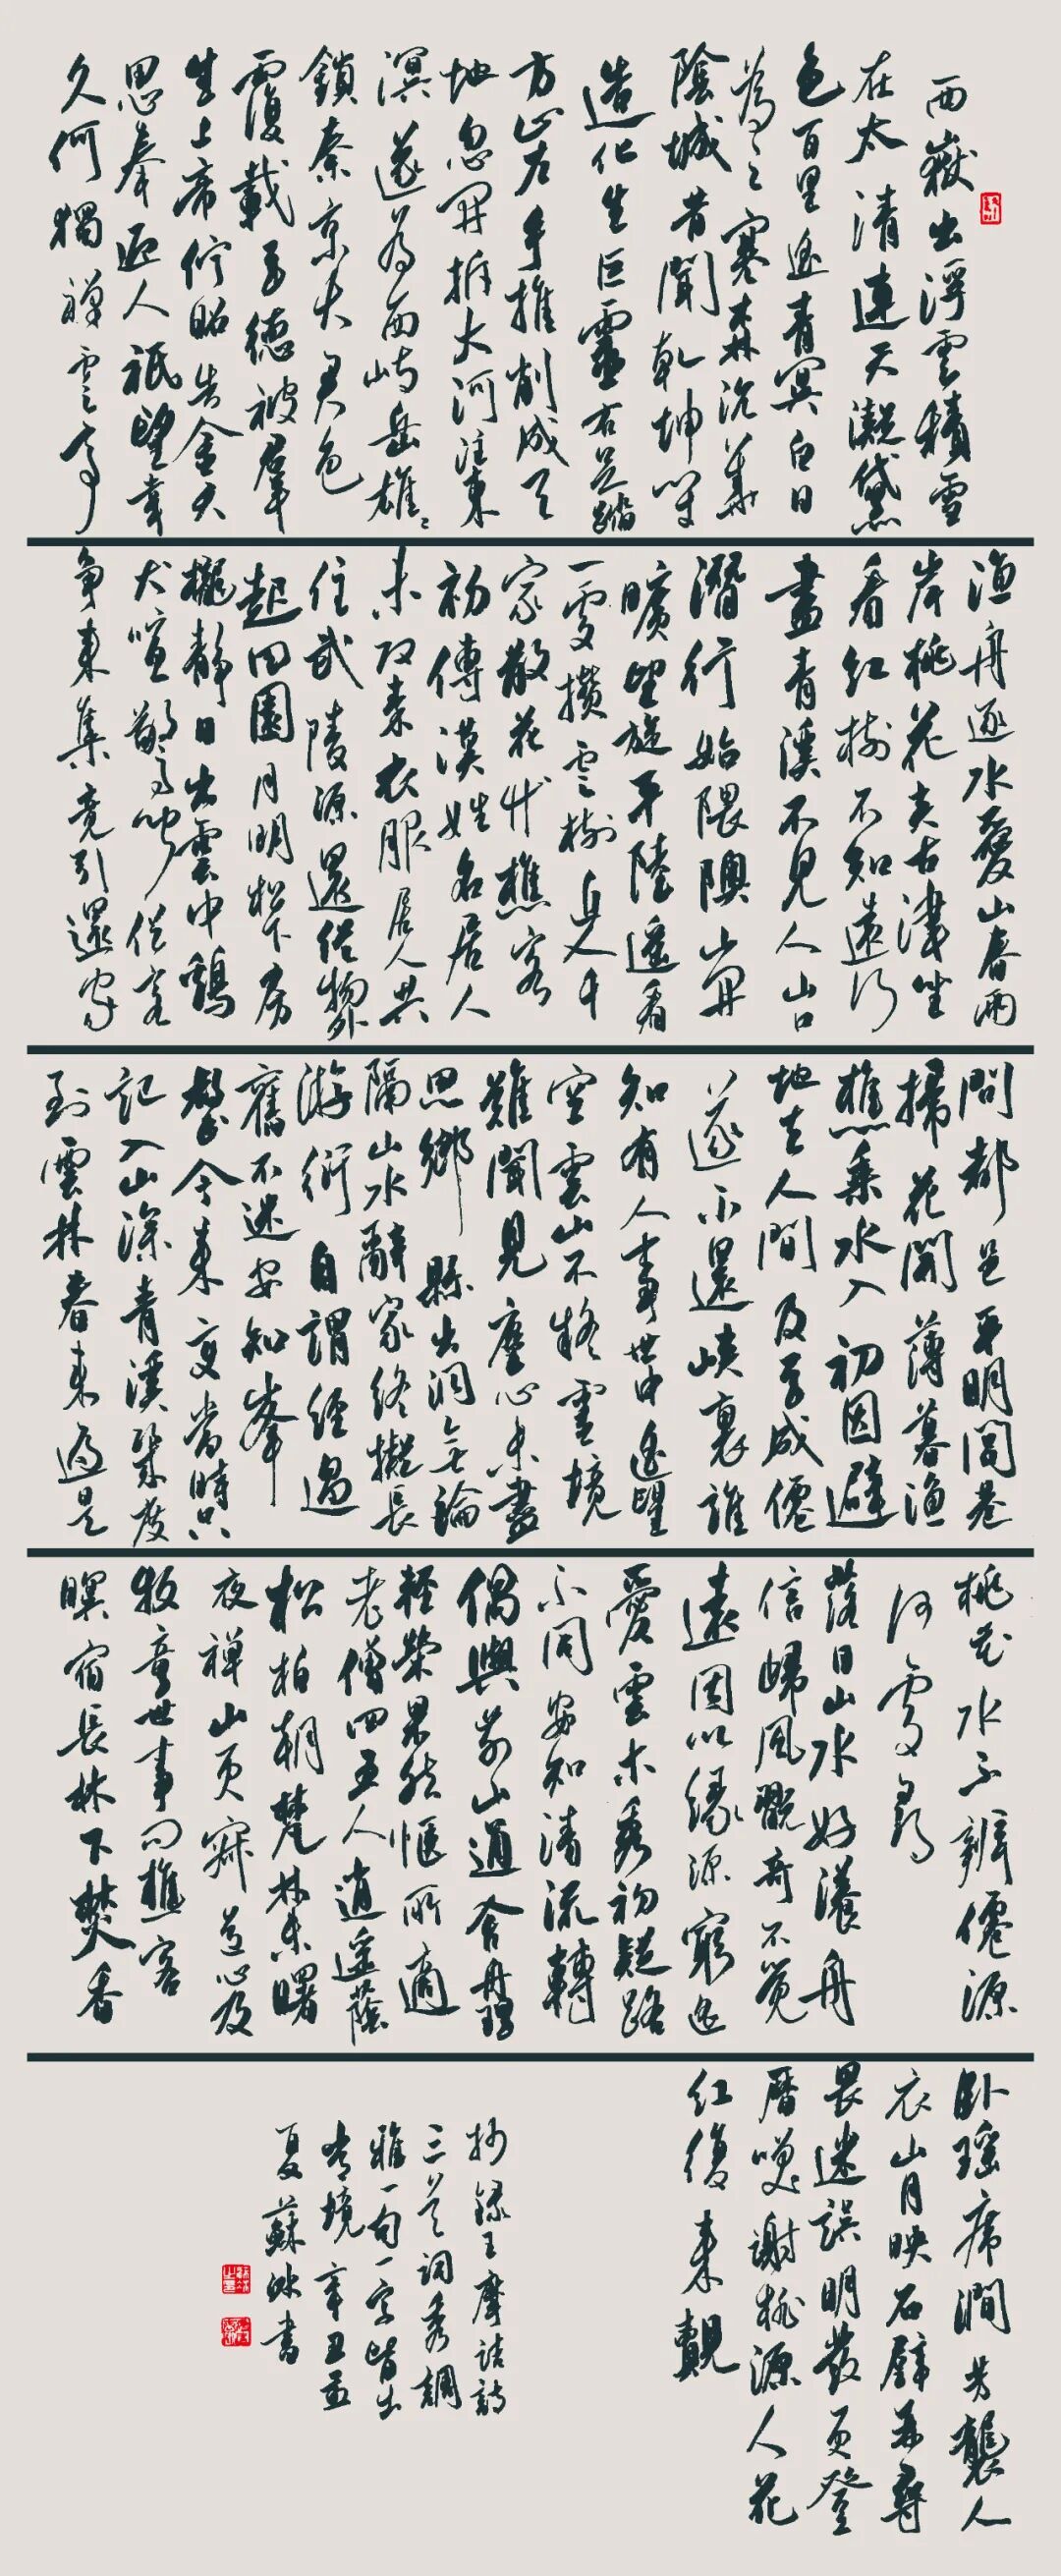 西嶽出浮雲積雪
在太清連天凝黛
色百里遙青冥白日
為之寒森沉華
陰城昔聞乾坤閉
造化生巨靈右足踏
方止左手推削成天
地忽開拆大河注東
溟遂為西峙岳雄雄
鎮秦京大君包
覆載至德被群
生上帝佇昭告金天
思奉迎人祇望幸
久何獨禪云亭
漁舟逐水愛山春兩
岸桃花夾古津坐
看紅樹不知遠行
盡青溪不見人山口
潛行始隈隩山開
曠望旋平陸遙看
一處攢雲樹近入千
家散花竹樵客
初傳漢姓名居人
未改秦衣服居人共
住武陵源還從物外
起田園月明松下房
櫳靜日出雲中鷄
犬喧驚聞俗客
爭來集竞引還家
問都邑平明閭巷
掃花開薄暮漁
樵乘水入初因避
地去人間及至成僊
遂不還峽裏誰
知有人事世中遙望
空雲山不疑靈境
難聞見塵心未盡
思鄉縣出洞無論
隔山水辭家終擬長
游衍自謂經過
舊不迷安知峯
壑今來變當時只
記入山深青溪幾度
到雲林春來遍是
桃花水不辨僊源
何處尋
落日山水好漾舟
信歸風翫奇不覺
遠因以緣源窮遙
愛雲木秀初疑路
不同安知清流轉
偶與前山通舍舟理
輕策果然愜所適
老僧四五人逍遙蔭
松柏朝梵林未曙
夜禪山更寂道心及
牧童世事問樵客
暝宿長林下焚香
臥瑤席澗芳襲人
衣山月映石壁再尋
畏迷誤明發更登
歷嘆謝桃源人花
紅復來覿
抄録王摩詰詩
三首詞秀調
雅一句一字皆出
常境辛丑孟
夏蘇書